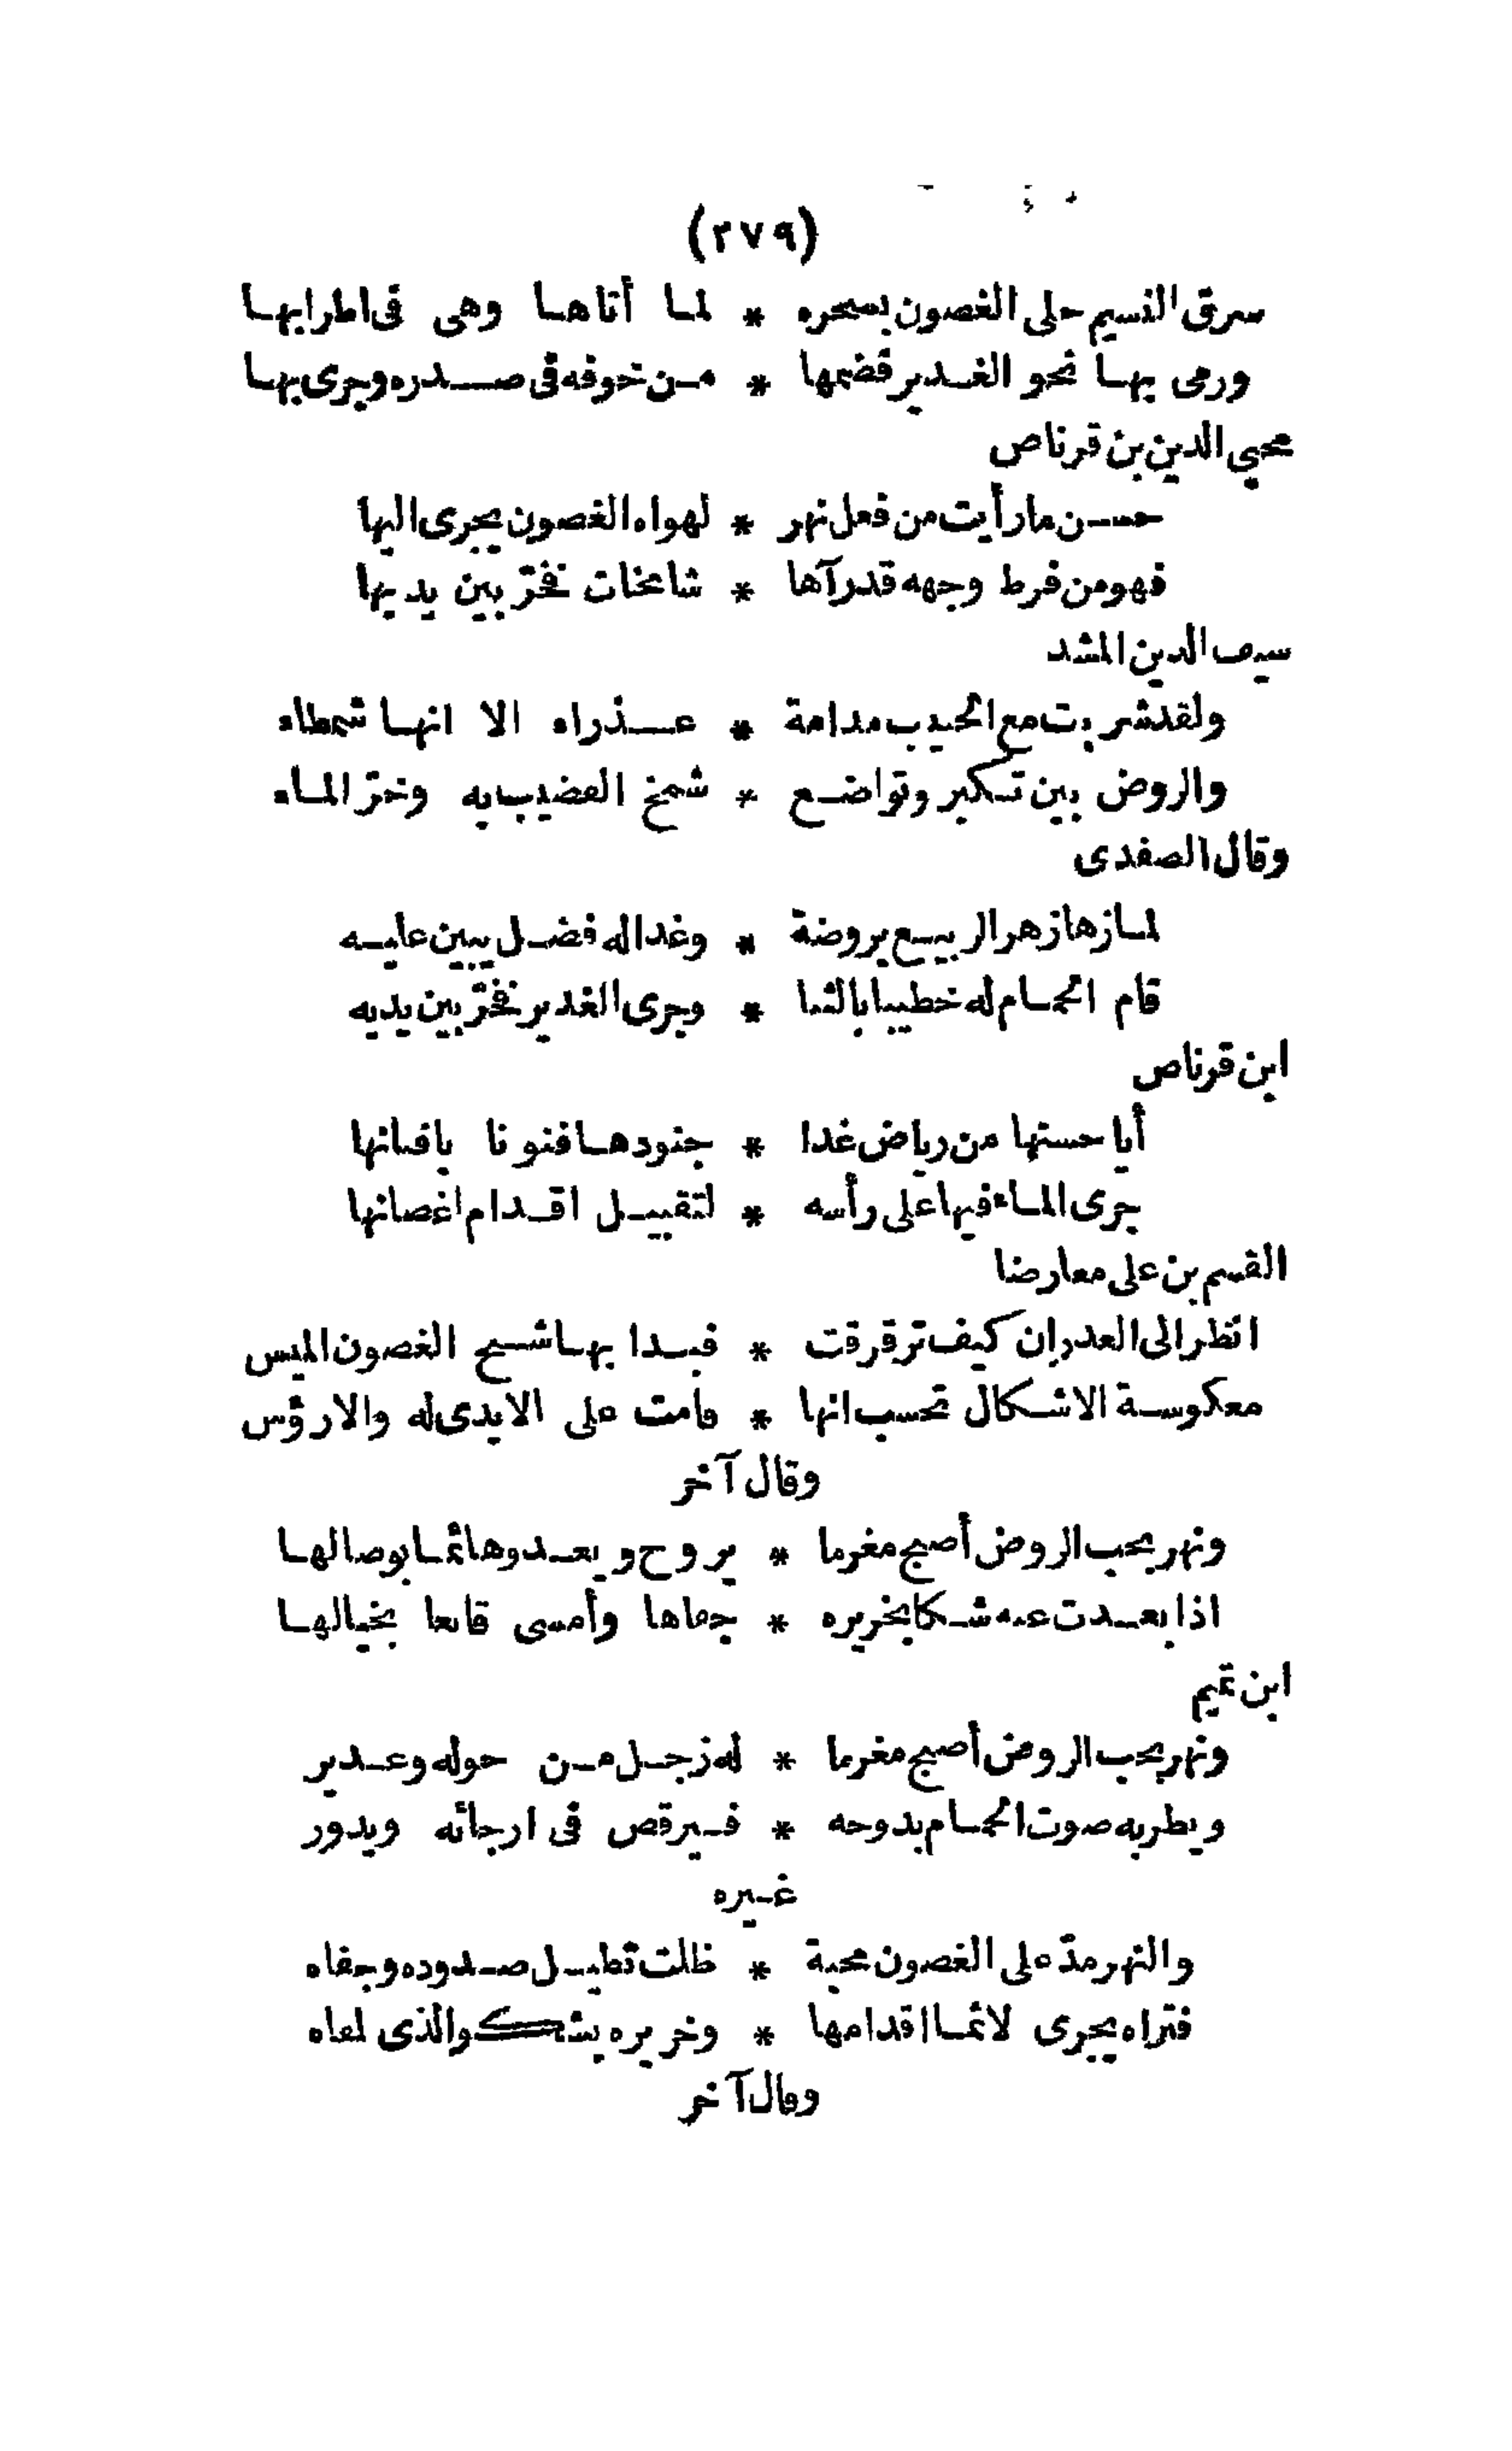 (٢٧٩)
سرق النسيم حلى الغصون بسحره * لما أتاها وهى فى اطرابها
ورمى بها نحو الغدير فضمها * من خوفه فى صدره وجرى بها
محيي الدين بن قرناص
حسن ما رأيت من فعل نهر * لهواه الغصون يجرى اليها
فهو من فرط وجهه قد رآها * شامخات فخرّ بين يديها
سيف الدين المشد
ولقد شربت مع الحبيب مدامة * عذراء الا انها شمطاء
والروض بين تكبر وتواضع * شمخ القضيب به وخرّ الماء
وقال الصفدى
لما زها زهر الربيع بروضة * وغدا له فضل يبين عليه
قام الحمام له خطيبا بالثنا * وجرى الغدير فخرّ بين يديه
ابن قرناص
أيا حسنها من رياض غدا * جنودها فنونا بافنانها
جرى الماء فيها على رأسه * لتقبيل اقدام اغصانها
القسم بن على معارضا
انظر الى الغدران كيف ترقرقت * فبدا بها شبح الغصون الميس
معكوسة الاشكال تحسب انها * قامت على الايدى له والارؤس
وقال آخر
ونهر بحب الروض أصبح مغرما * يروح ويغدو هائما بوصالها
اذا بعدت عنه شكا بخريره * جفاها وأمسى قانعا بخيالها
ابن تميم
ونهر بحب الروض أصبح مغرما * له زجل من حوله وغدير
ويطربه صوت الحمام بدوحه * فيرقص فى ارجائه ويدور
غيره
والنهر مدّ على الغصون محبة * ظلت تطيل صدوده وجفاه
فتراه يجرى لاثما اقدامها * وخريره يشكو الذى لقاه
وقال آخر